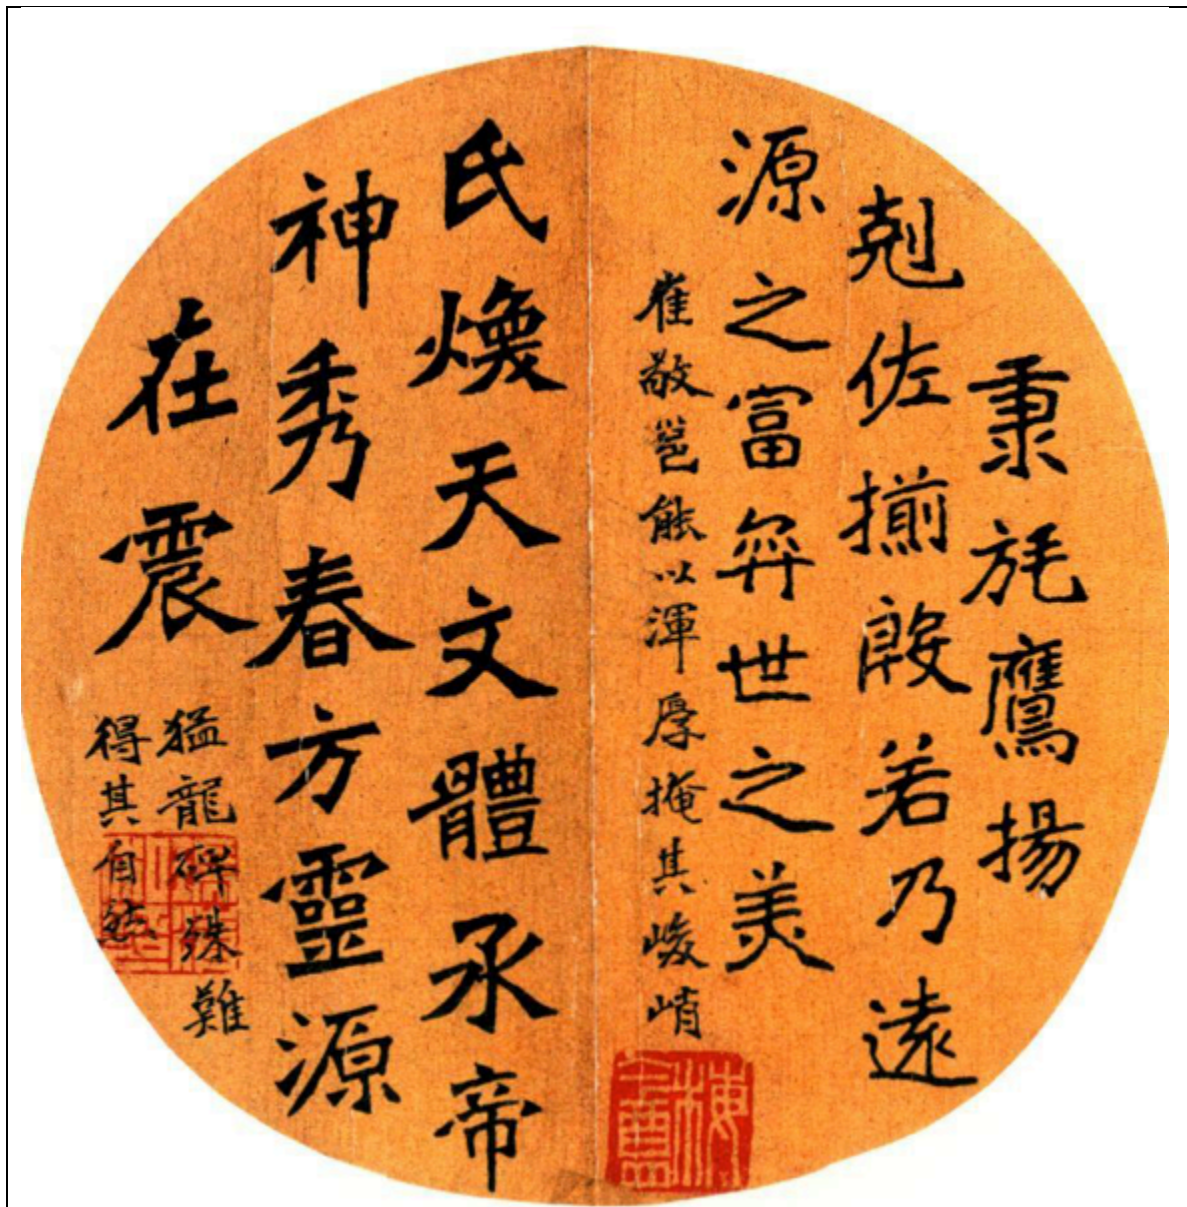 秉旄鷹揚
剋佐揃殷若乃遠
源之富弈世之美
崔敬邕能以渾厚掩其峻峭
氏煥天文體承帝
神秀春方靈源
在震
猛龍碑殊難
得其自然